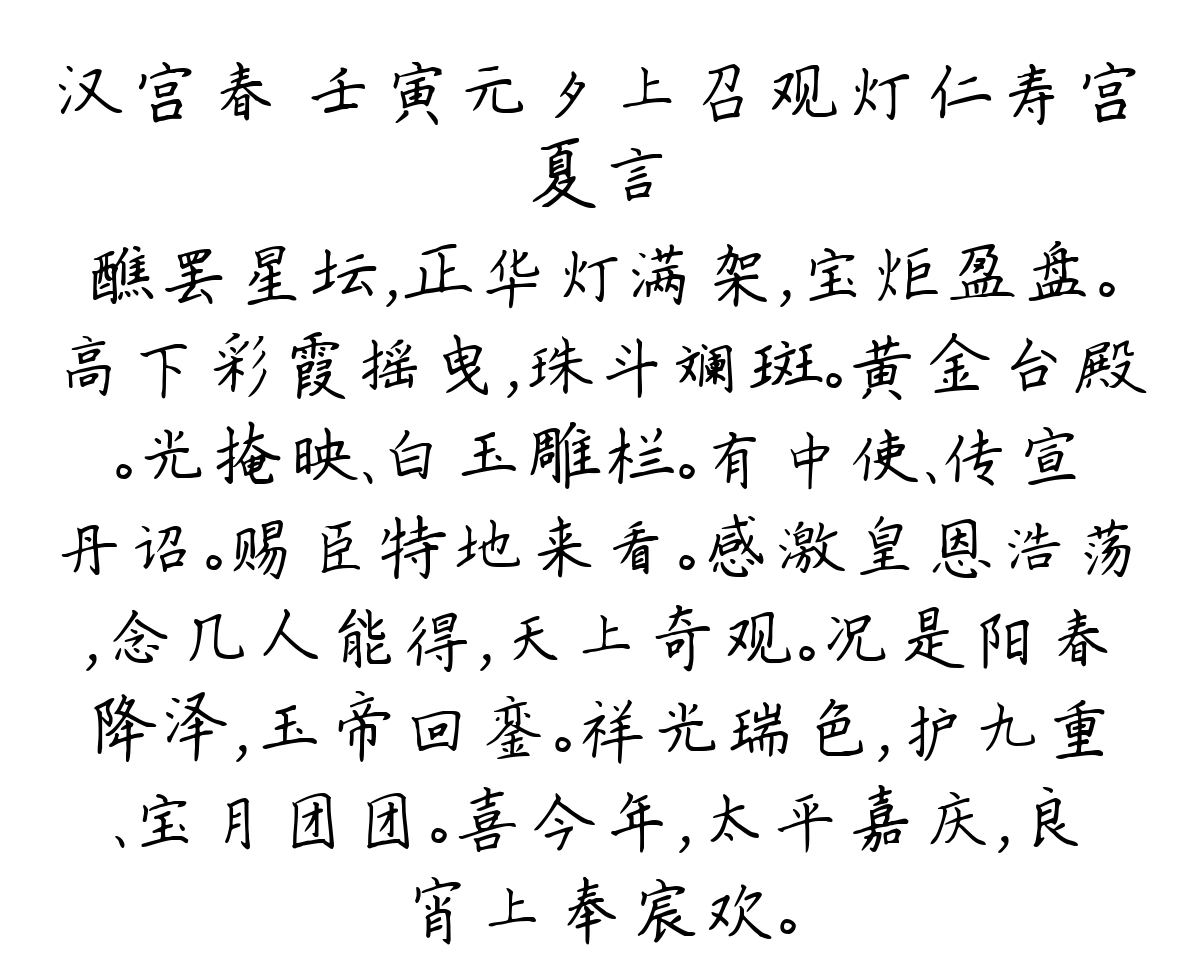 汉宫春 壬寅元夕上召观灯仁寿宫
夏言
醮罢星坛,正华灯满架,宝炬盈盘。
高下彩霞摇曳,珠斗斓斑。黄金台殿
。光掩映、白玉雕栏。有中使、传宣
丹诏。赐臣特地来看。感激皇恩浩荡
,念几人能得,天上奇观。况是阳春
降泽,玉帝回銮。祥光瑞色,护九重
、宝月团团。喜今年,太平嘉庆,良
宵上奉宸欢。